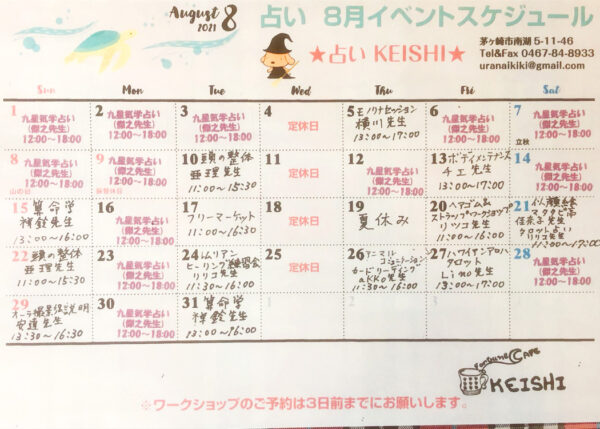 August 8
2021
占い 8月イベントスケジュール
★占い KEISHI★
茅ヶ崎市南湖 5-11-46
Tel&Fax 0467-84-8933
uranaikiki@gmail.com
Sun Mon Tue Wed Thu Fri Sat
1
九星気学占い
(傑之先生)
12:00~18:00
2
九星気学占い
(傑之先生)
12:00~18:00
3
九星気学占い
(傑之先生)
12:00~18:00
4
定休日
5
横川先生
13:00~17:00
6
九星気学占い
(傑之先生)
12:00~18:00
7
立秋
九星気学占い
(傑之先生)
12:00~18:00
8
山の日
九星気学占い
(傑之先生)
12:00~18:00
9
振替休日
九星気学占い
(傑之先生)
12:00~18:00
10 頭の整体
亜理先生
11:00~15:30
11
定休日
12
九星気学占い
(傑之先生)
12:00~18:00
13 ボディメンテナンス
チエ先生
13:00~17:00
14
九星気学占い
(傑之先生)
12:00~18:00
15 算命学
祥鈴先生
13:00~16:00
16
九星気学占い
(傑之先生)
12:00~18:00
17
フリーマーケット
11:00~16:00
18
定休日
19
夏休み
20 ヘアゴム&
ストラップワークショップ
リツコ先生
11:00~16:00
21 似顔絵
タロット占い
リリコ先生
11:00~17:00
22 頭の整体
亜理先生
11:00~15:30
23
九星気学占い
(傑之先生)
12:00~18:00
24 レムリアン
ヒーリング練習会
リリコ先生
11:30~16:00
25
定休日
26 アニマル
コミュニケーション
カードリーディング
akko先生
11:30~16:00
27 ハワイアンアロハ
タロット
Lino先生
13:00~17:00
28
九星気学占い
(傑之先生)
12:00~18:00
29
オーラ撮影役説明
安道先生
13:30~16:30
30
九星気学占い
(傑之先生)
12:00~18:00
31 算命学
祥鈴先生
13:00~16:00
1 2 3 4
Fortune CAFE
KEISHI
※ワークショップのご予約は3日前までにお願いします。